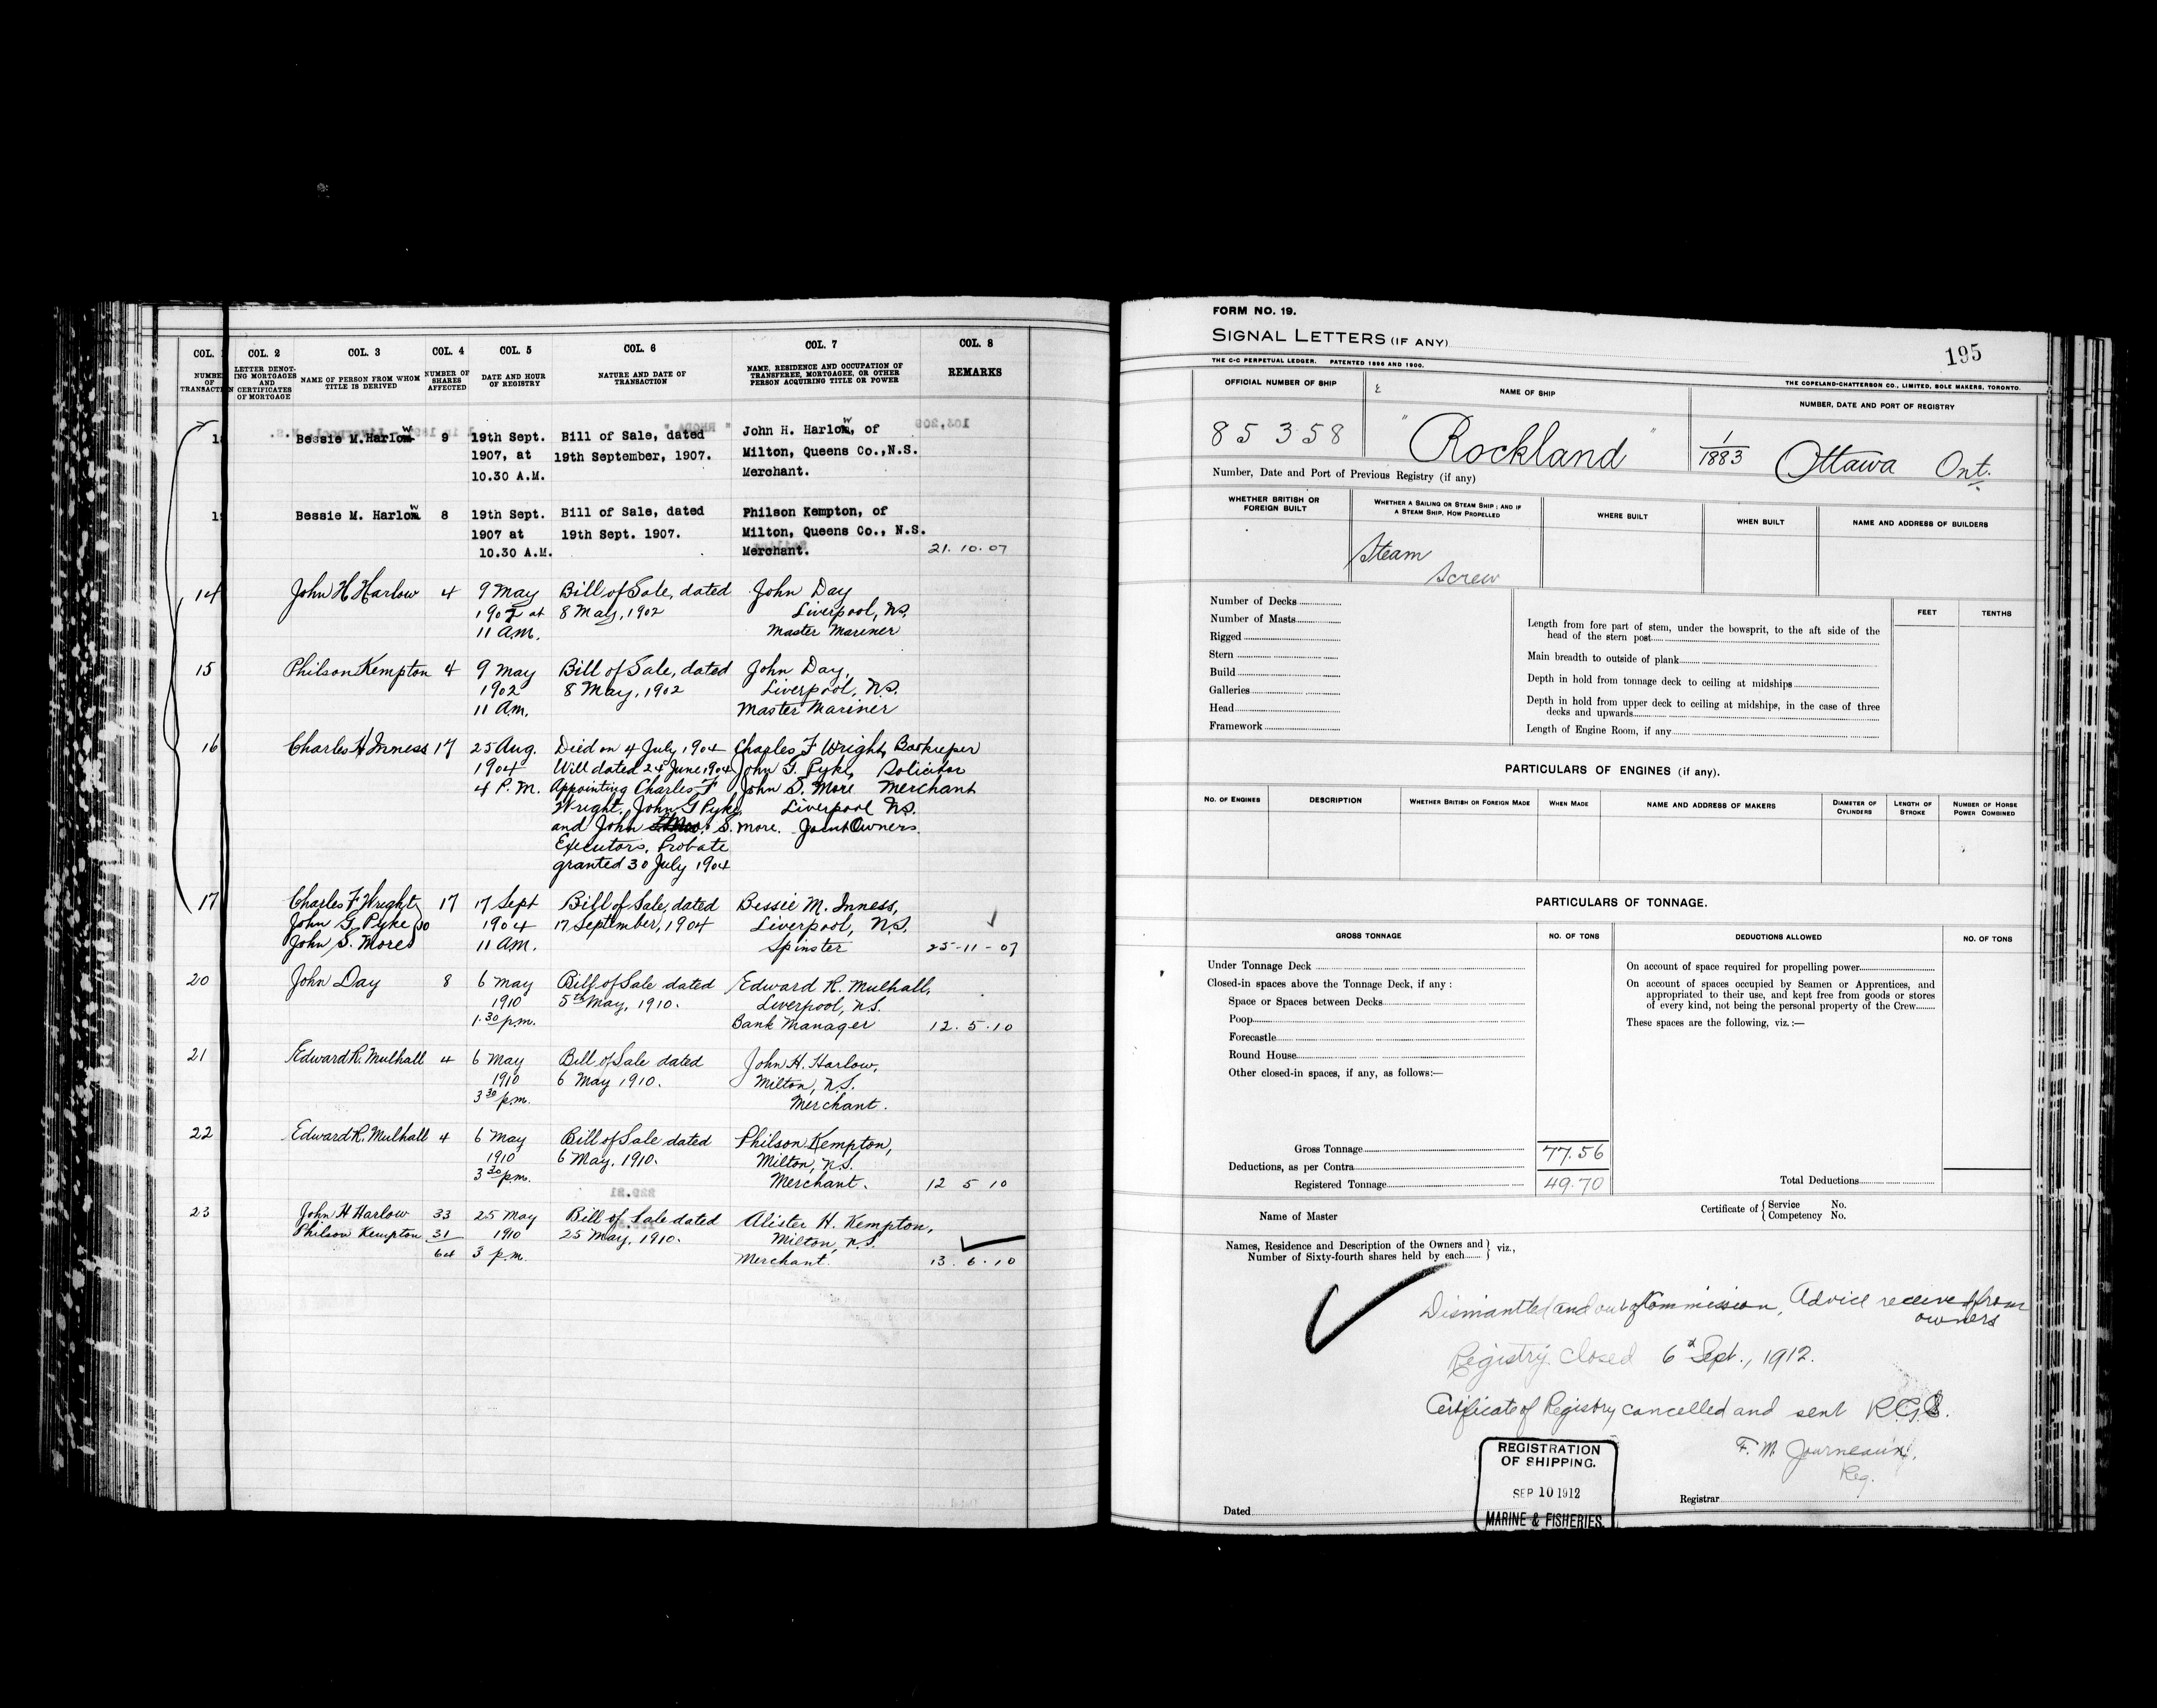 COL.
COL. 2
COL. 3
COL. 4
COL. 5
COL. 6
COL. 7
COL. 8
NUMBE
OF
TRANSACTI
LETTER DENOT-
ING MORTGAGES
AND
CERTIFICATES
OF MORTGAGE
NAME OF PERSON FROM WHOM
TITLE IS DERIVED
NUMBER OF
SHARES
AFFECTED
DATE AND HOUR
OF REGISTRY
NATURE AND DATE OF
TRANSACTION
NAME, RESIDENCE AND OCCUPATION OF
TRANSFEREE, MORTGAGEE, OR OTHER
PERSON ACQUIRING TITLE OR POWER
REMARKS
Bessie M. Harlow 9 19th Sept. Bill of Sale, dated John H. Harlow, of
1907, at 19th September, 1907. Milton, Queens Co.,N.S.
10.30 A.M. Merchant.
Bessie M. Harlow 8 19th Sept. Bill of Sale, dated Philson Kempton, of
1907 at 19th Sept. 1907. Milton, Queens Co., N.S.
10.30 A.M. Merchant. 21.10.07
14 John H Harlow 4 9 May Bill of Sale, dated John Day
1902 at 8 May, 1902 Liverpool, N.S.
11 A.M. Master Mariner
15 Philson Kempton 4 9 May Bill of Sale, dated John Day,
1902 8 May, 1902 Liverpool, N.S.
11 A.M. Master Mariner
16 Charles H Inness 17 25 Aug. Died on 4 July 1904 Charles F Wright, Bookeeper
1904 Will dated 24 June 1904 John G. Pyke, Solicitor
4 P.M. Appointing Charles F John S. More Merchant
Wright, John G Pyke, Liverpool N.S.
and John S. More. Joint Owners.
Executors, Probate
granted 30 July 1904
17 Charles F Wright 17 17 Sept Bill of Sale, dated Bessie M. Inness,
John G. Pyke } JO 1904 17 September, 1904 Liverpool, N.S.
John S. More 11 A.M. Spinster 25-11-07
20 John Day 8 6 May Bill of Sale dated Edward R. Mulhall,
1910 5th May, 1910. Liverpool, N.S.
1.30 p.m. Bank Manager 12.5.10
21 Edward R. Mulhall 4 6 May Bill of Sale dated John H. Harlow,
1910 6 May 1910. Milton, N.S.
3 30 p.m. Merchant.
22 Edward R. Mulhall 4 6 May Bill of Sale dated Philson Kempton,
1910 6 May, 1910. Milton, N.S.
3 30 p.m. Merchant. 12 5 10
23 John H Harlow 33 25 May Bill of Sale dated Alister H. Kempton,
Philson Kempton 31 1910 25 May, 1910. Milton, N.S.
64 3 p.m. Merchant. 13.6.10
FORM NO. 19.
SIGNAL LETTERS (IF ANY)
195
THE C-C PERPETUAL LEDGER. PATENTED 1896 AND 1900.
THE COPELAND-CHATTERSON CO., LIMITED, SOLE MAKERS, TORONTO.
OFFICIAL NUMBER OF SHIP
NAME OF SHIP
NUMBER, DATE AND PORT OF REGISTRY
85 358
"Rockland"
1/1883 Ottawa Ont.
Number, Date and Port of Previous Registry (if any)
WHETHER BRITISH OR
FOREIGN BUILT
WHETHER A SAILING OR STEAM SHIP; AND IF
A STEAM SHIP, HOW PROPELLED
WHERE BUILT
WHEN BUILT
NAME AND ADDRESS OF BUILDERS
Steam
Screw
Number of Decks
Number of Masts
Rigged
Stern
Build
Galleries
Head
Framework
FEET
TENTHS
Length from fore part of stem, under the bowsprit, to the aft side of the
head of the stern post
Main breadth to outside of plank
Depth in hold from tonnage deck to ceiling at midships
Depth in hold from upper deck to ceiling at midships, in the case of three
decks and upwards
Length of Engine Room, if any
PARTICULARS OF ENGINES (if any).
NO. OF ENGINES
DESCRIPTION
WHETHER BRITISH OR FOREIGN MADE
WHEN MADE
NAME AND ADDRESS OF MAKERS
DIAMETER OF
CYLINDERS
LENGTH OF
STROKE
NUMBER OF HORSE
POWER COMBINED
PARTICULARS OF TONNAGE.
GROSS TONNAGE
NO. OF TONS
DEDUCTIONS ALLOWED
NO. OF TONS
Under Tonnage Deck
Closed-in spaces above the Tonnage Deck, if any:
Space or Spaces between Decks
Poop
Forecastle
Round House
Other closed-in spaces, if any, as follows:—
On account of space required for propelling power
On account of spaces occupied by Seamen or Apprentices, and
appropriated to their use, and kept free from goods or stores
of every kind, not being the personal property of the Crew
These spaces are the following, viz.:—
Gross Tonnage 77.56
Deductions, as per Contra
Registered Tonnage 49.70
Total Deductions
Name of Master
Certificate of { Service No.
Competency No.
Names, Residence and Description of the Owners and
Number of Sixty-fourth shares held by each } viz.,
Dismantled and out of Commission, Advice received from
owners
Registry Closed 6th Sept., 1912.
Certificate of Registry cancelled and sent R.G.S.
F. M. Journeaux,
Reg.
REGISTRATION
OF SHIPPING.
SEP 10 1912
MARINE & FISHERIES.
Dated
Registrar